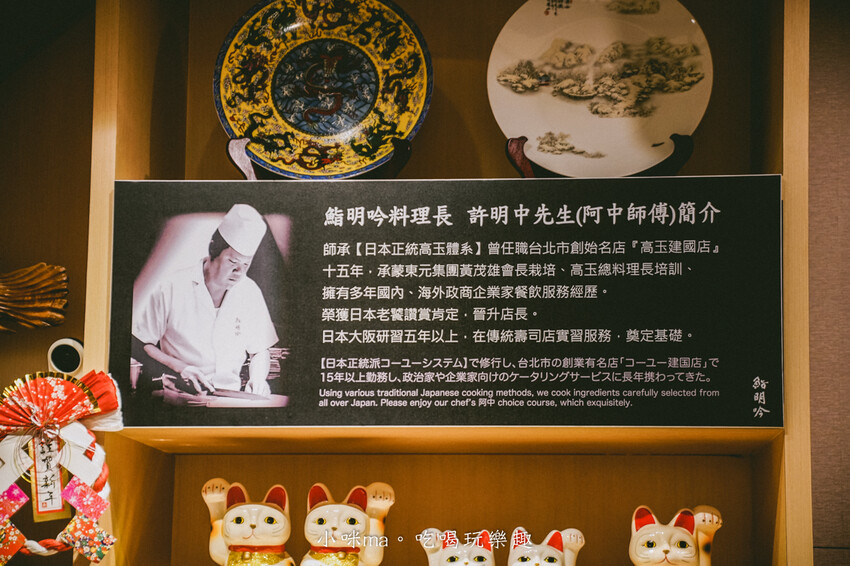 鮨明吟料理長 許明中先生(阿中師傅)簡介
師承【日本正統高玉體系】曾任職台北市創始名店『高玉建國店』
十五年，承蒙東元集團黃茂雄會長栽培、高玉總料理長培訓、
擁有多年國內、海外政商企業家餐飲服務經歷。
榮獲日本老饕讚賞肯定，晉升店長。
日本大阪研習五年以上，在傳統壽司店實習服務，奠定基礎。
【日本正統派コーユーシステム】で修行し、台北市の創業有名店「コーユー建国店」で
15年以上勤務し、政治家や企業家向けのケータリングサービスに長年携わってきた。
Using various traditional Japanese cooking methods, we cook ingredients carefully selected from
all over Japan. Please enjoy our chef's 阿中 choice course, which exquisitely.
鮨明吟
謹賀新年
小咪ma。吃喝玩樂趣